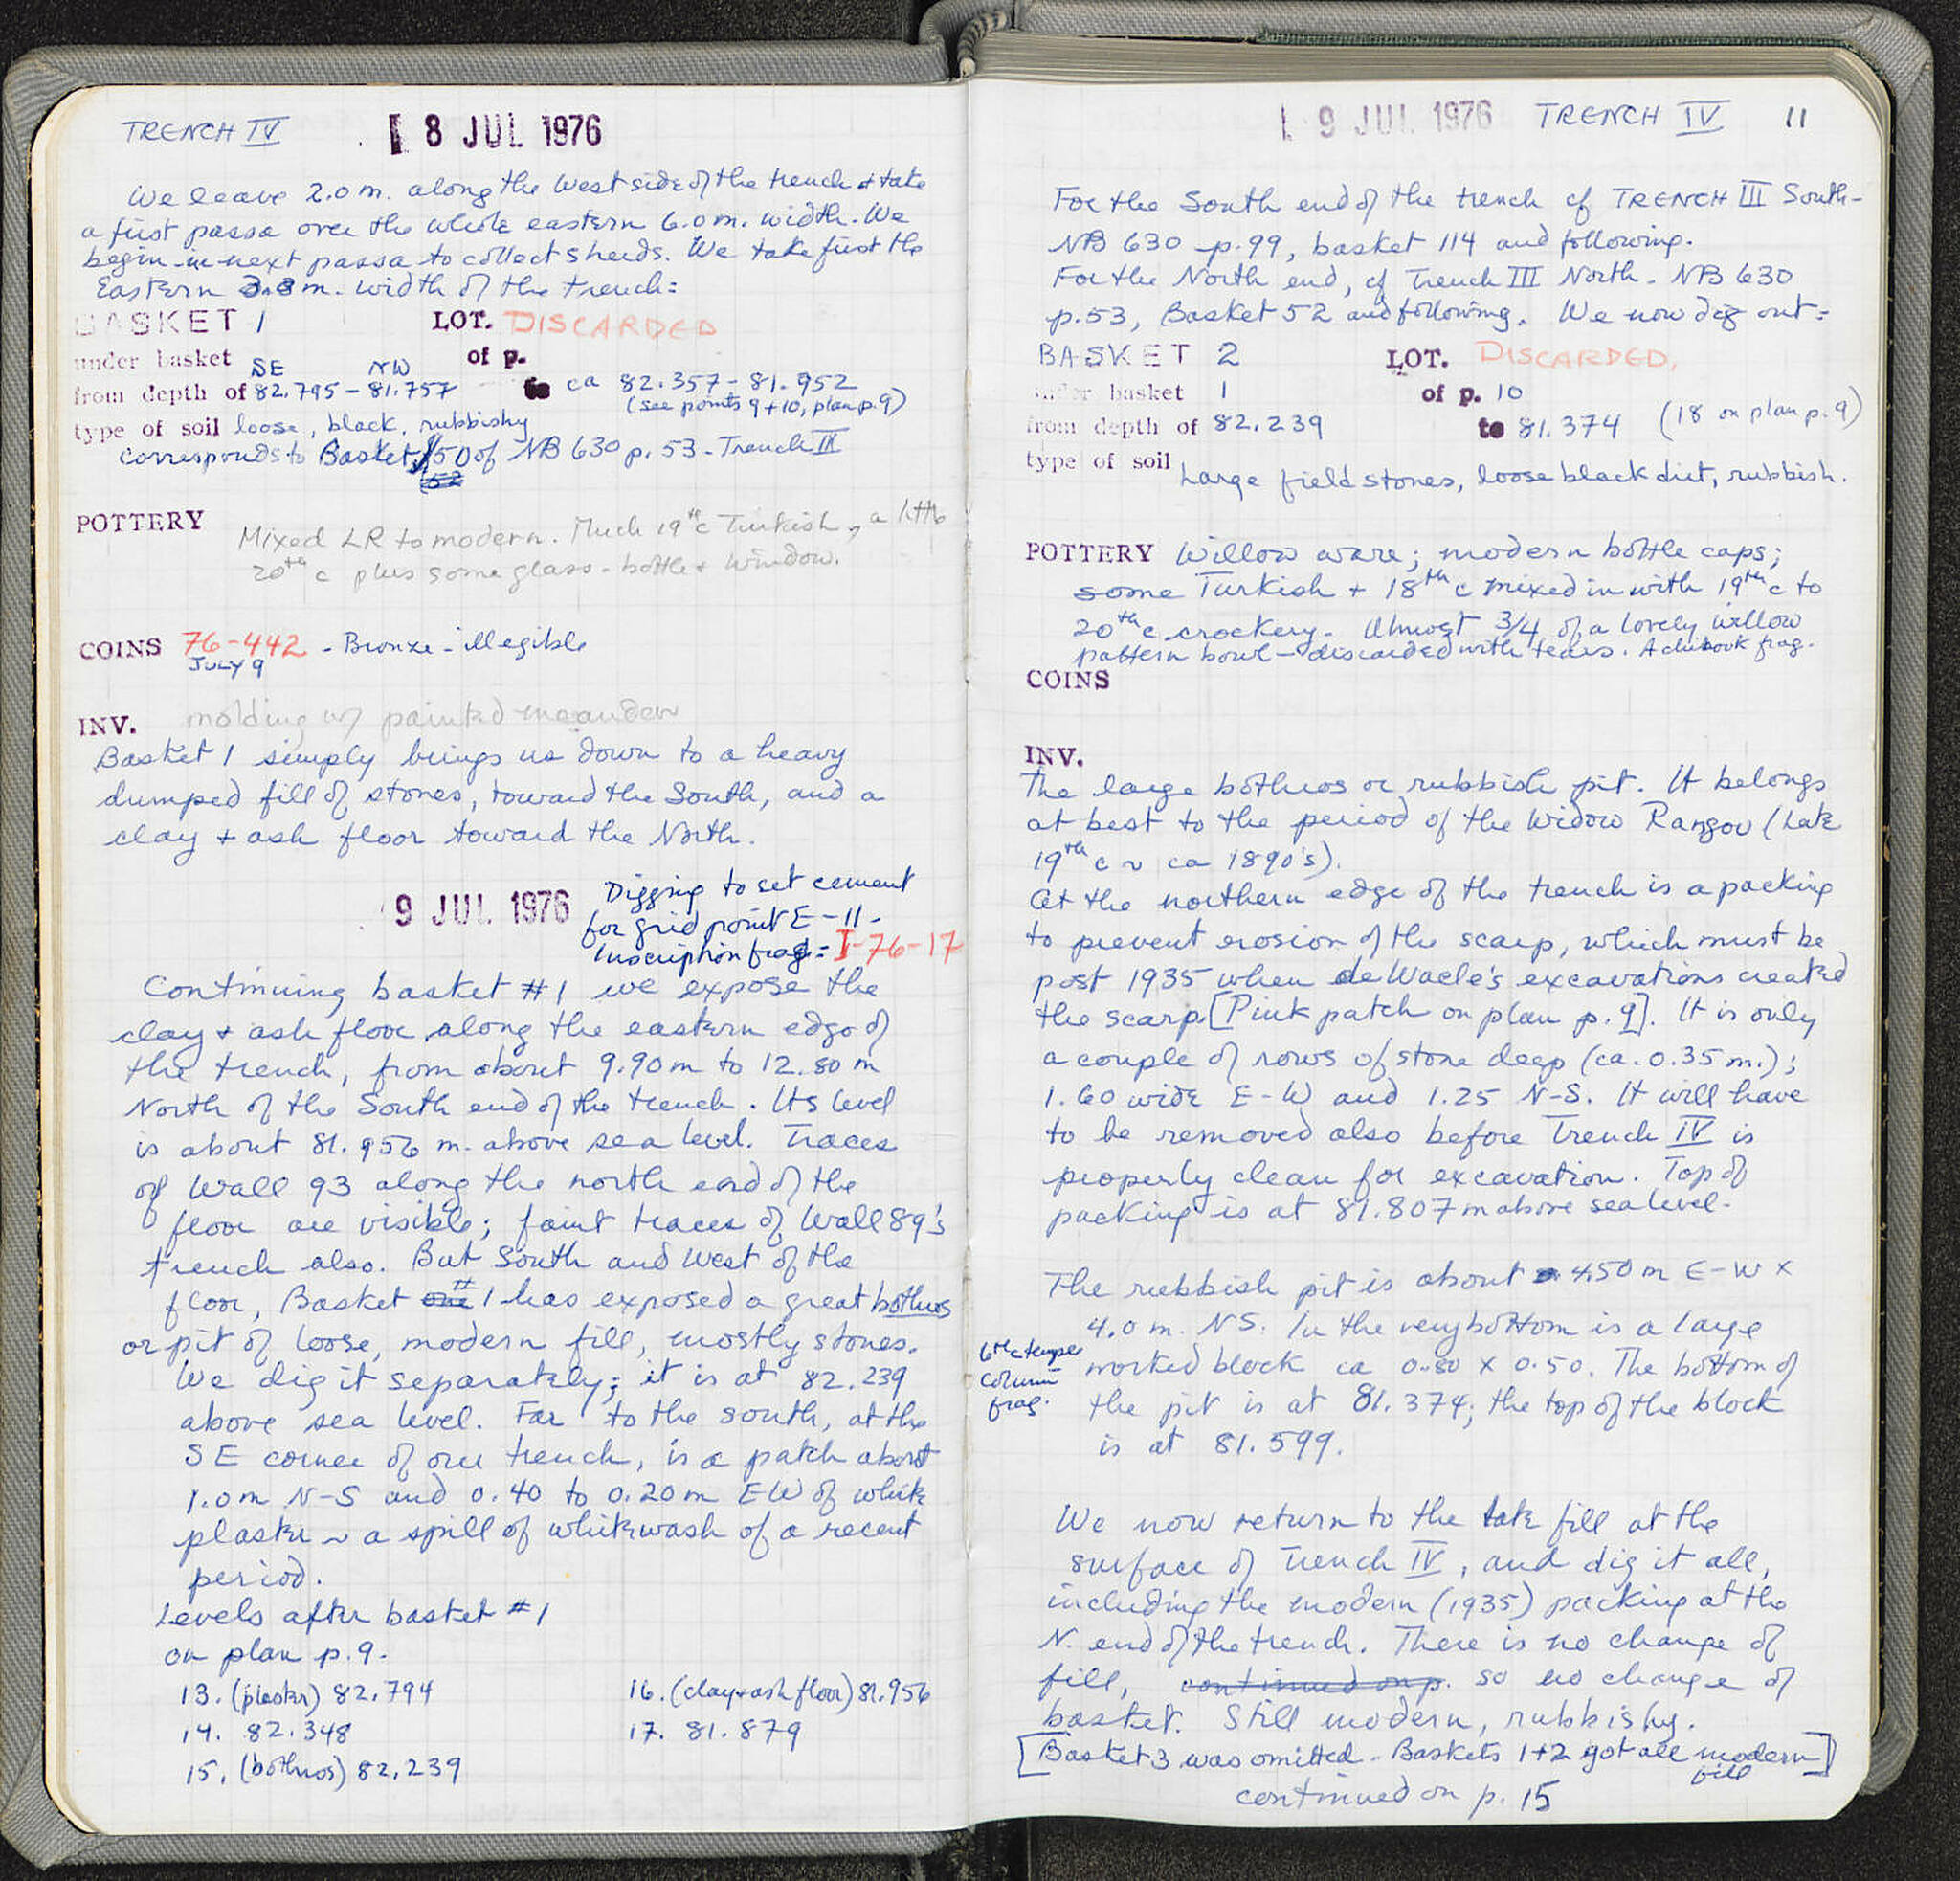 TRENCH IV 8 JUL 1976
We leave 2.0 m. along the West side of the trench & take
a first passa over the whole eastern 6.0 m. width. We
begin in next passa to collect sherds. We take first the
Eastern m. width of the trench:
BASKET 1 LOT. DISCARDED
under basket of p.
SE NW
from depth of 82.795 - 81.757 to ca 82.357 - 81.952
(see points 9 + 10, plan p. 9)
type of soil loose, black, rubbishy
corresponds to Basket 50 of NB 630 p. 53 - Trench III
52
POTTERY Mixed LR to modern. Much 19th c Turkish, a little
20th c plus some glass - bottle & window.
COINS 76-442 - Bronze - illegible
JULY 9
INV. molding w/ painted meander
Basket 1 simply brings us down to a heavy
dumped fill of stones, toward the South, and a
clay + ash floor toward the North.
9 JUL 1976 Digging to set cement
for grid point E-11-
Inscription frag: = I-76-17
Continuing basket #1 we expose the
clay + ash floor along the eastern edge of
the trench, from about 9.90 m to 12.80 m
North of the South end of the trench. Its level
is about 81.956 m. above sea level. Traces
of Wall 93 along the north end of the
floor are visible; faint traces of Wall 89's
trench also. But South and West of the
floor, Basket one #1 has exposed a great bothros
or pit of loose, modern fill, mostly stones.
We dig it separately; it is at 82.239
above sea level. Far to the south, at the
SE corner of our trench, is a patch about
1.0 m N-S and 0.40 to 0.20 m EW of white
plaster ~ a spill of whitewash of a recent
period.
Levels after basket #1
on plan p. 9.
13. (plaster) 82.794 16. (clay + ash floor) 81.956
14. 82.348 17. 81.879
15. (bothros) 82.239
9 JUL 1976 TRENCH IV 11
For the South end of the trench cf TRENCH III South -
NB 630 p. 99, basket 114 and following.
For the North end, cf Trench III North - NB 630
p. 53, Basket 52 and following. We now dig out:
BASKET 2 LOT. DISCARDED,
under basket 1 of p. 10
from depth of 82.239 to 81.374 (18 on plan p. 9)
type of soil Large field stones, loose black dirt, rubbish.
POTTERY Willow ware; modern bottle caps;
some Turkish + 18th c mixed in with 19th c to
20th c crockery. Almost 3/4 of a lovely willow
pattern bowl - discarded with tears. A chibouk frag.
COINS
INV.
The large bothros or rubbish pit. It belongs
at best to the period of the Widow Rangou (Late
19th c ~ ca 1890's).
At the northern edge of the trench is a packing
to prevent erosion of the scarp, which must be
post 1935 when de Waele's excavations created
the scarp [Pink patch on plan p. 9]. It is only
a couple of rows of stone deep (ca. 0.35 m.);
1.60 wide E-W and 1.25 N-S. It will have
to be removed also before Trench IV is
properly clean for excavation. Top of
packing is at 81.807 m above sea level.
The rubbish pit is about 4.50 m E-W x
4.0 m. NS. In the very bottom is a large
worked block ca 0.80 x 0.50. The bottom of
the pit is at 81.374; the top of the block
is at 81.599.
6th c temple
column
frag.
We now return to the late fill at the
surface of Trench IV, and dig it all,
including the modern (1935) packing at the
N. end of the trench. There is no change of
fill, continued on p. so no change of
basket. Still modern, rubbishy.
[Basket 3 was omitted - Baskets 1 + 2 got all modern
fill]
continued on p. 15